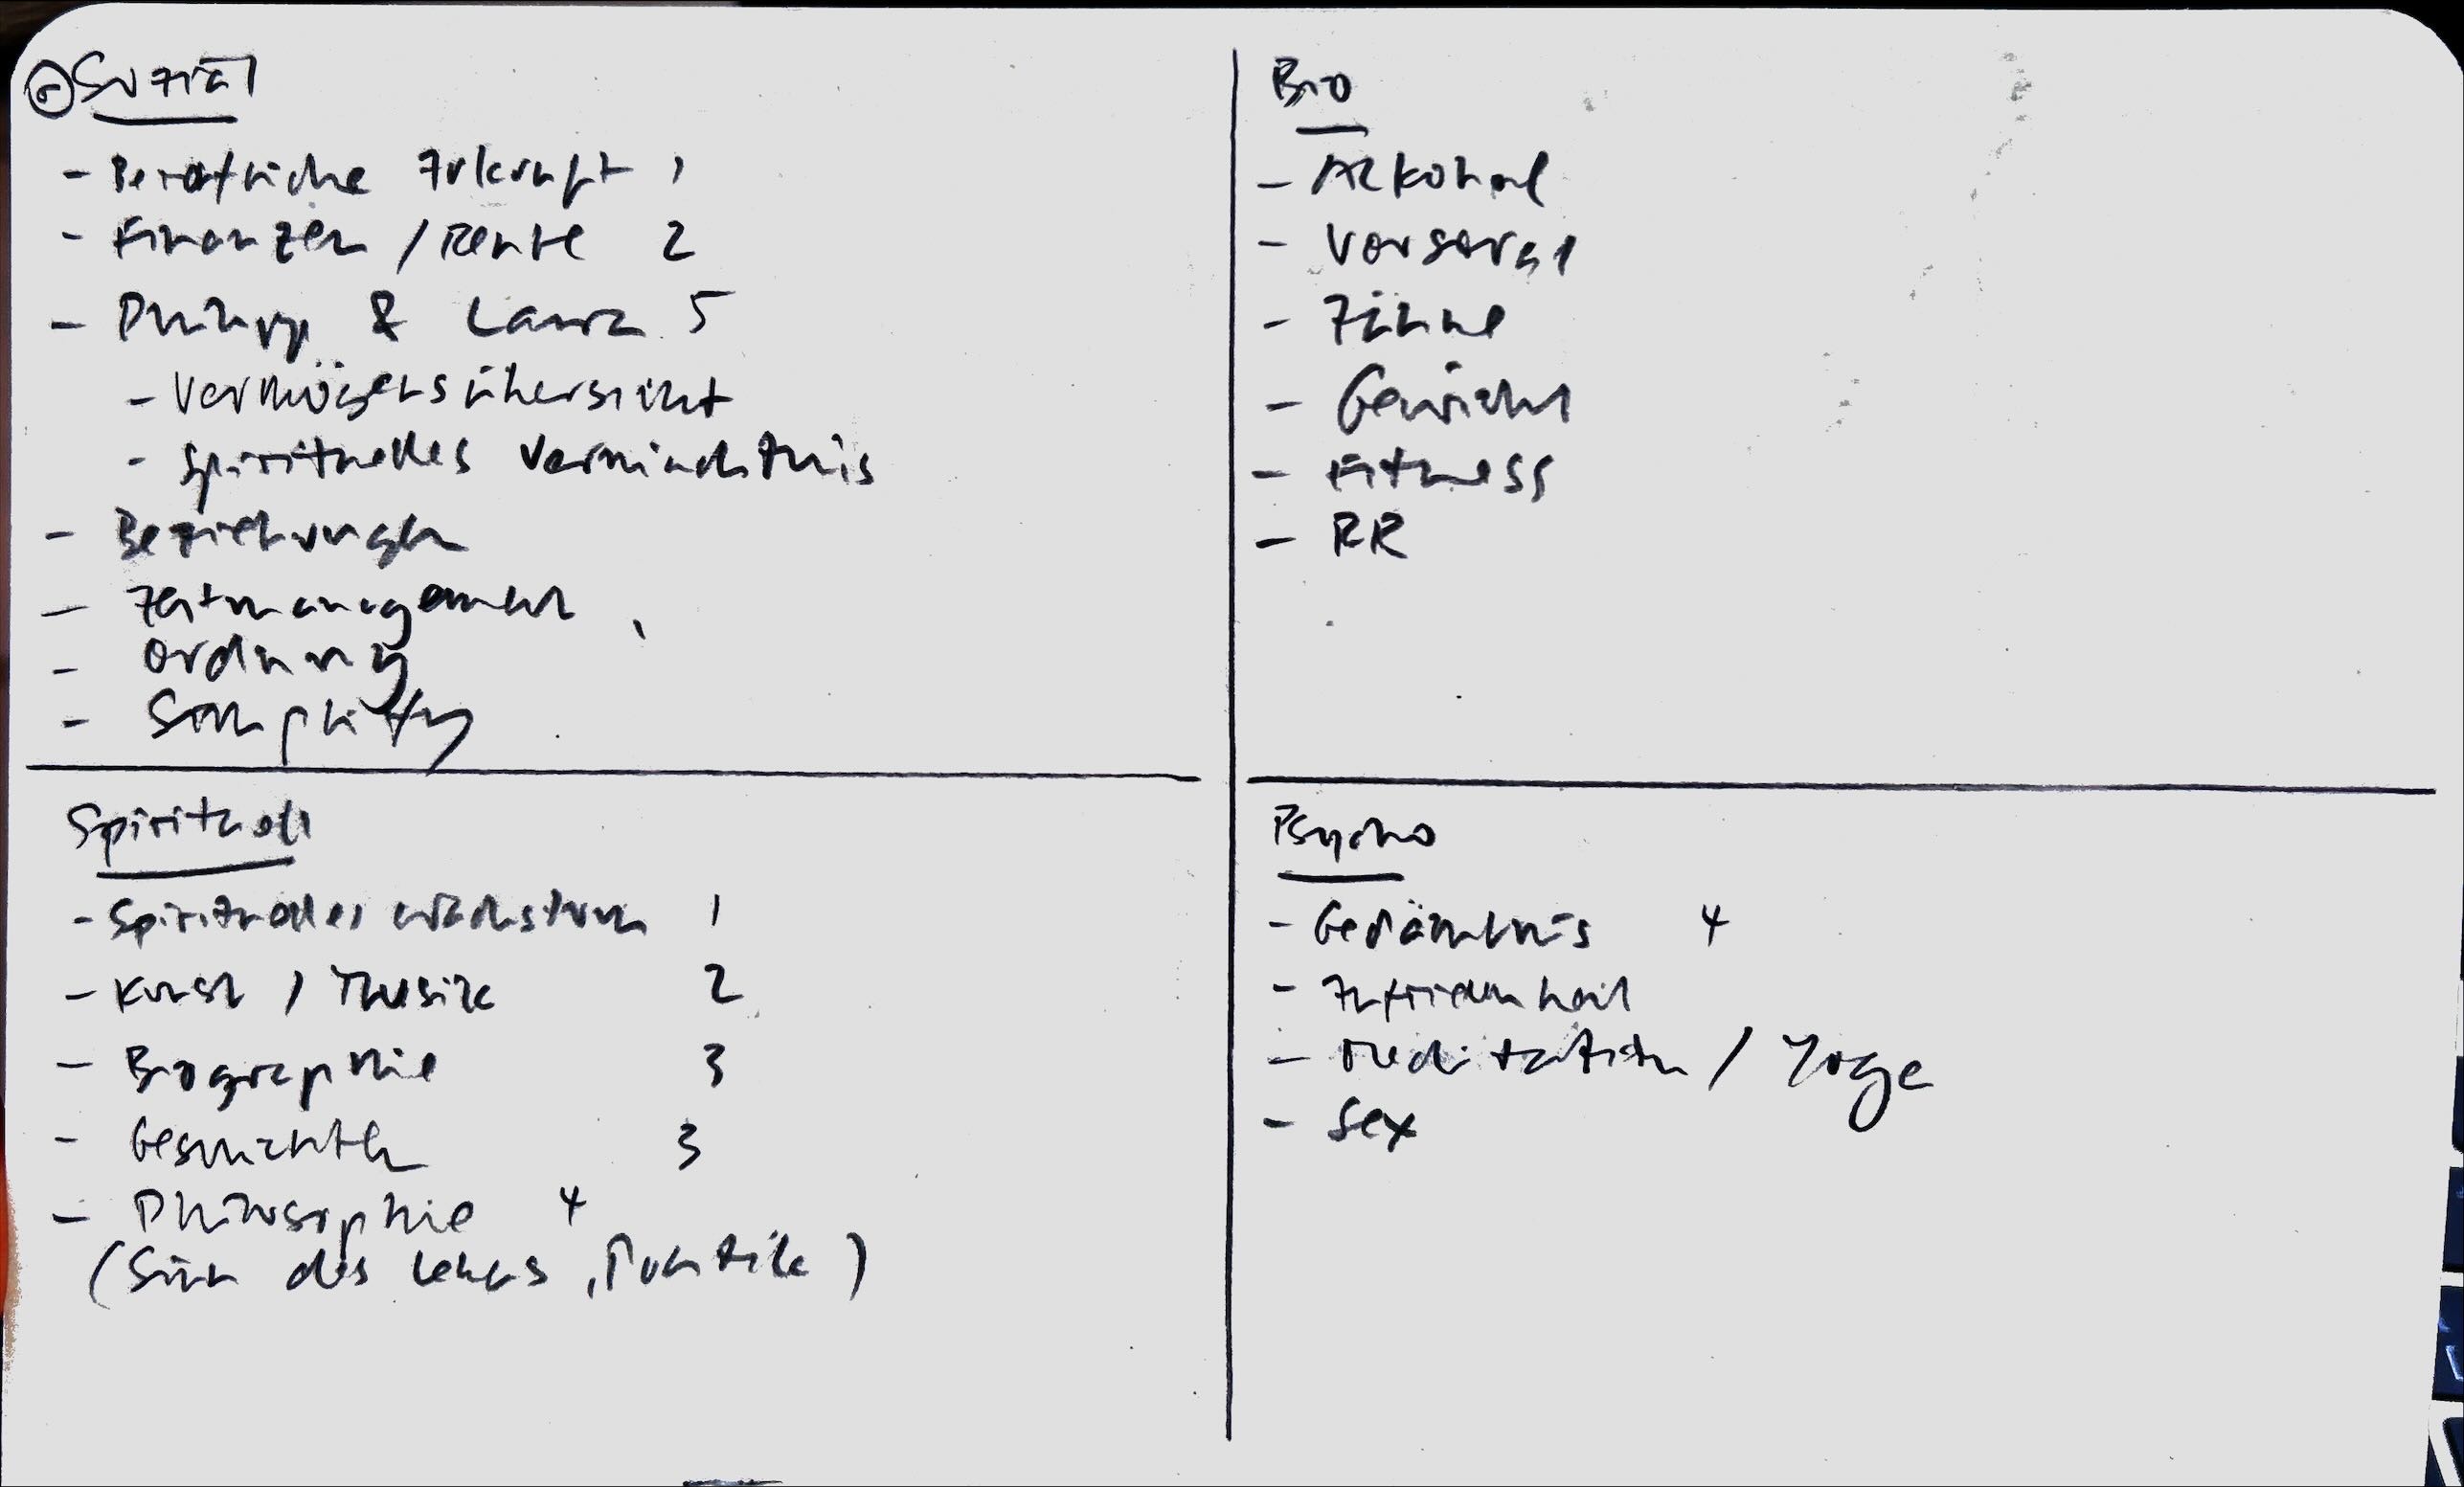 Sozial
- Berufliche Zukunft 1
- Finanzen / Rente 2
- Philipp & Laura 5
- Vermögensübersicht
- Spirituelles Vermächtnis
- Beziehungen
- Zeitmanagement
- Ordnung
- Simplify
Bio
- Alkohol
- Vorsorge
- Zähne
- Gewicht
- Fitness
- RR
Spirituell
- Spirituelles Wachstum 1
- Kunst / Musik 2
- Biographie 3
- Geschichten 3
- Philosophie 4
(Sinn des Lebens, )
Psycho
- Gedächtnis 4
- Zufriedenheit
- Meditation / Yoga
- Sex